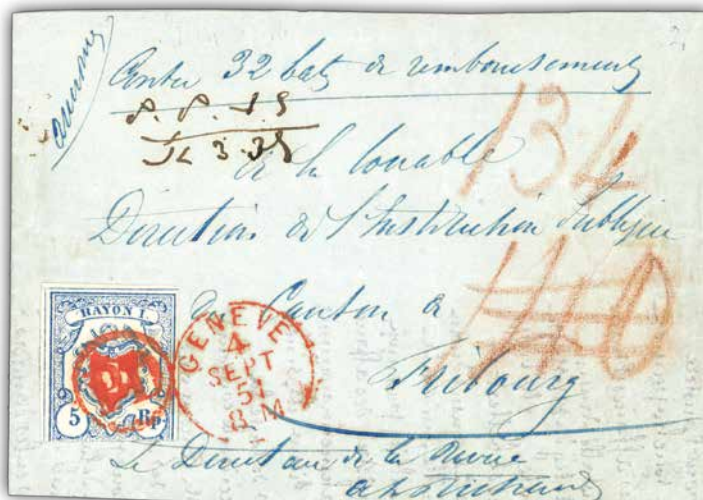 Contre 32 batz de remboursement
P. P. 15
3.35
134
à la louable
Direction de l'Instruction Publique
du Canton de
140
Fribourg
RAYON I.
5 Rp.
GENEVE
4
SEPT
51
8 M
Le Directeur de la Revue